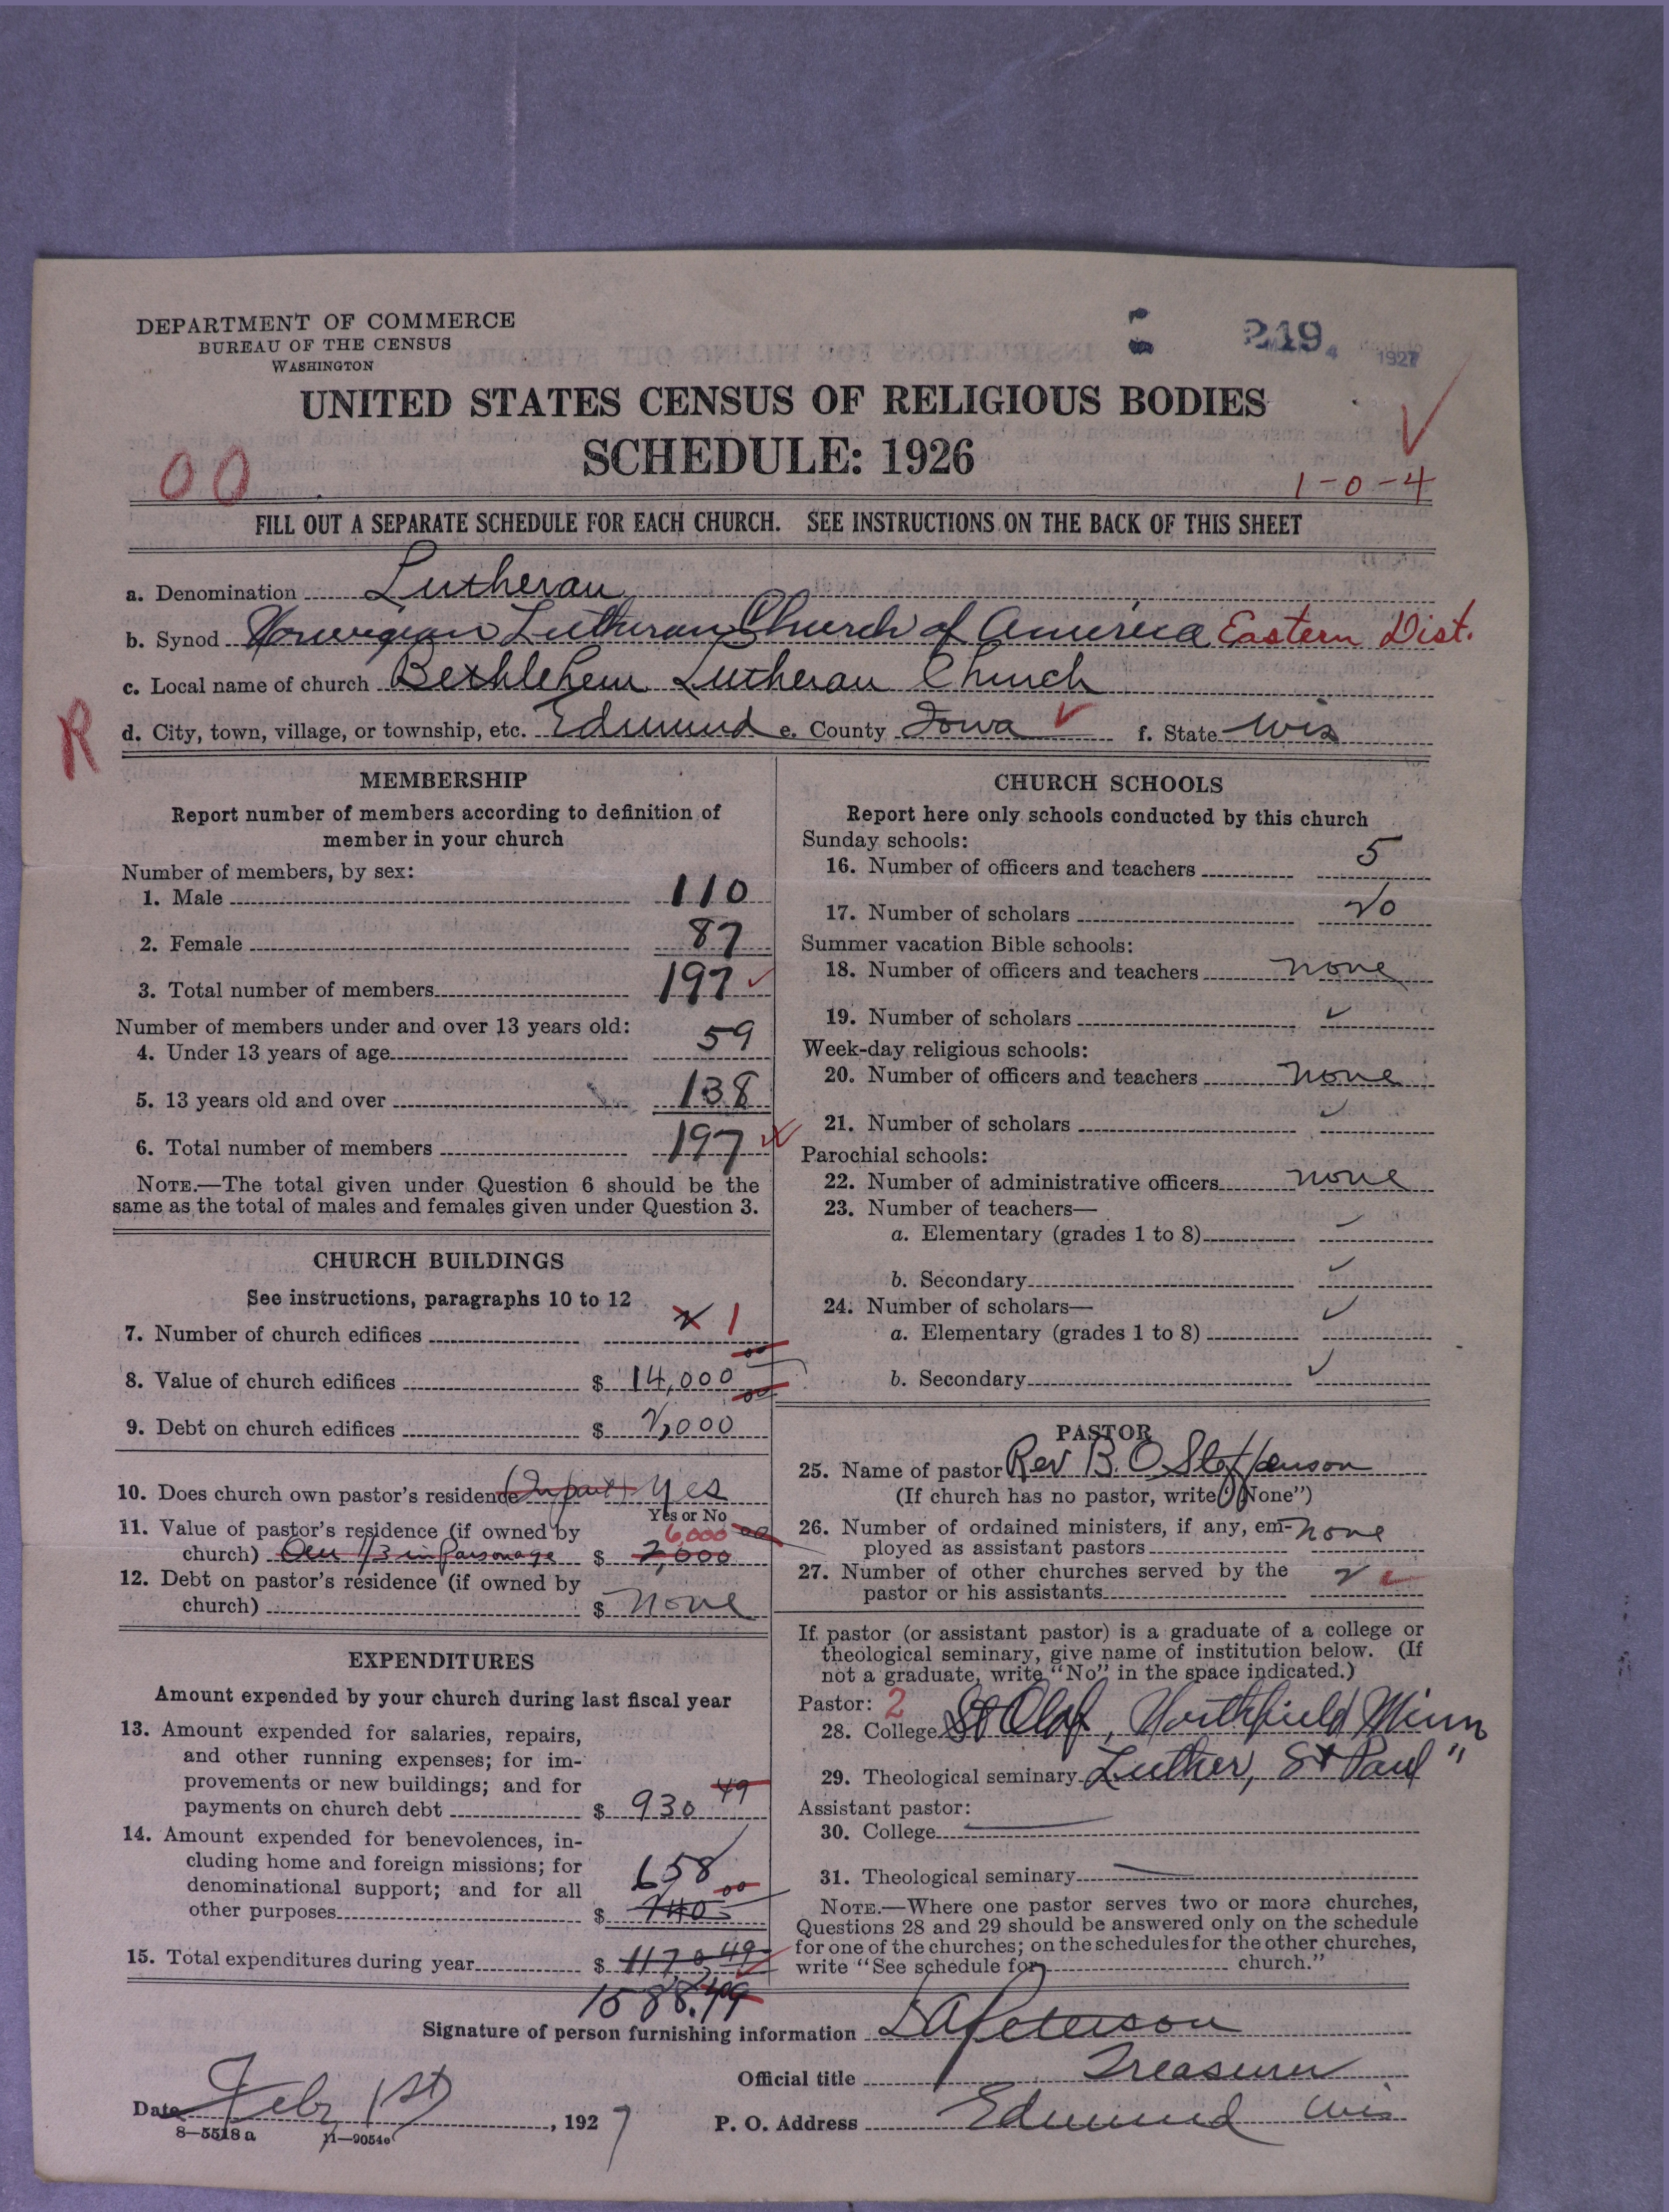 DEPARTMENT OF COMMERCE
BUREAU OF THE CENSUS
WASHINGTON
249
1927
UNITED STATES CENSUS OF RELIGIOUS BODIES
SCHEDULE: 1926
00
1-0-4
FILL OUT A SEPARATE SCHEDULE FOR EACH CHURCH. SEE INSTRUCTIONS ON THE BACK OF THIS SHEET
a. Denomination Lutheran
b. Synod Norwegian Lutheran Church of America Eastern Dist.
c. Local name of church Bethlehem Lutheran Church
R
d. City, town, village, or township, etc. Edmund e. County Iowa f. State Wis
MEMBERSHIP
Report number of members according to definition of
member in your church
Number of members, by sex:
1. Male 110
2. Female 87
3. Total number of members 197
Number of members under and over 13 years old:
4. Under 13 years of age 59
5. 13 years old and over 138
6. Total number of members 197
NOTE.—The total given under Question 6 should be the
same as the total of males and females given under Question 3.
CHURCH BUILDINGS
See instructions, paragraphs 10 to 12
7. Number of church edifices 2 1
8. Value of church edifices $ 14,000 00
9. Debt on church edifices $ 2,000 00
10. Does church own pastor's residence (In part) Yes
Yes or No
11. Value of pastor's residence (if owned by 6,000 00
church) Own 1/3 in Parsonage $ 2,000
12. Debt on pastor's residence (if owned by
church) $ none
EXPENDITURES
Amount expended by your church during last fiscal year
13. Amount expended for salaries, repairs,
and other running expenses; for im-
provements or new buildings; and for
payments on church debt $ 930 49
14. Amount expended for benevolences, in-
cluding home and foreign missions; for 658
denominational support; and for all 00
other purposes $
15. Total expenditures during year $ 1170 49
1588.49
CHURCH SCHOOLS
Report here only schools conducted by this church
Sunday schools:
16. Number of officers and teachers 5
17. Number of scholars 20
Summer vacation Bible schools:
18. Number of officers and teachers none
19. Number of scholars
Week-day religious schools:
20. Number of officers and teachers none
21. Number of scholars
Parochial schools:
22. Number of administrative officers none
23. Number of teachers—
a. Elementary (grades 1 to 8)
b. Secondary
24. Number of scholars—
a. Elementary (grades 1 to 8)
b. Secondary
PASTOR
25. Name of pastor Rev B. O. Stoffenson
(If church has no pastor, write "None")
26. Number of ordained ministers, if any, em- none
ployed as assistant pastors
27. Number of other churches served by the 2
pastor or his assistants
If pastor (or assistant pastor) is a graduate of a college or
theological seminary, give name of institution below. (If
not a graduate, write "No" in the space indicated.)
Pastor: 2
28. College St Olaf, Northfield Minn
29. Theological seminary Luther, St Paul "
Assistant pastor:
30. College
31. Theological seminary
NOTE.—Where one pastor serves two or more churches,
Questions 28 and 29 should be answered only on the schedule
for one of the churches; on the schedules for the other churches,
write "See schedule for church."
Signature of person furnishing information L A Peterson
Official title Treasurer
Date Feby 1st, 1927
P. O. Address Edmund Wis
8—5518a 11—9054